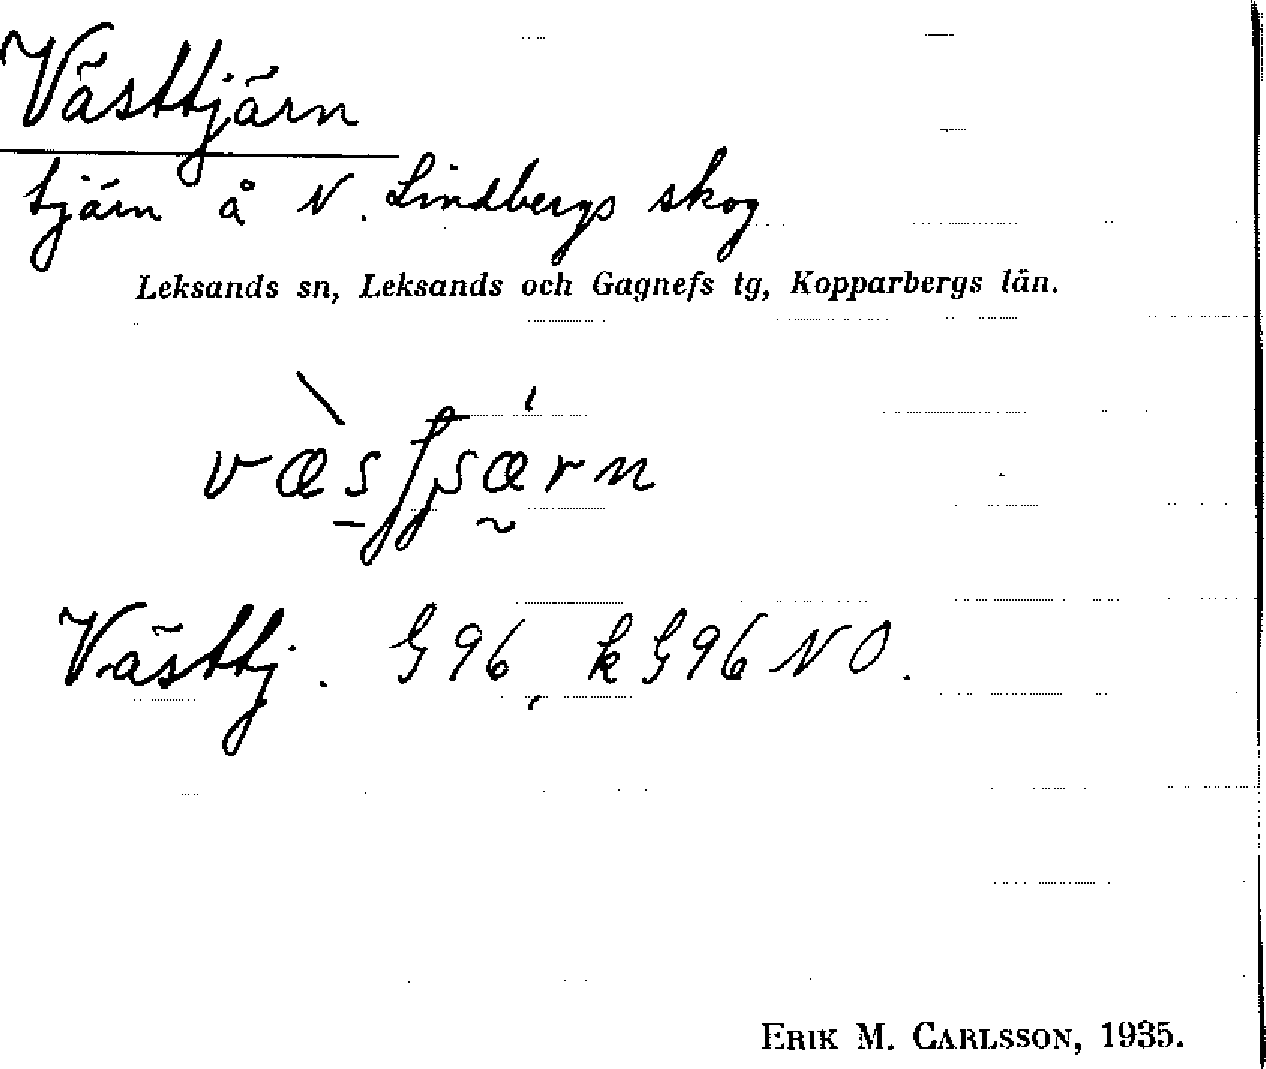 Västtjärn
tjärn å N. Lindbergs skog
Leksands sn, Leksands och Gagnefs tg, Kopparbergs län.
Västtj. G96, k G96 NO.
ERIK M. CARLSSON, 1935.